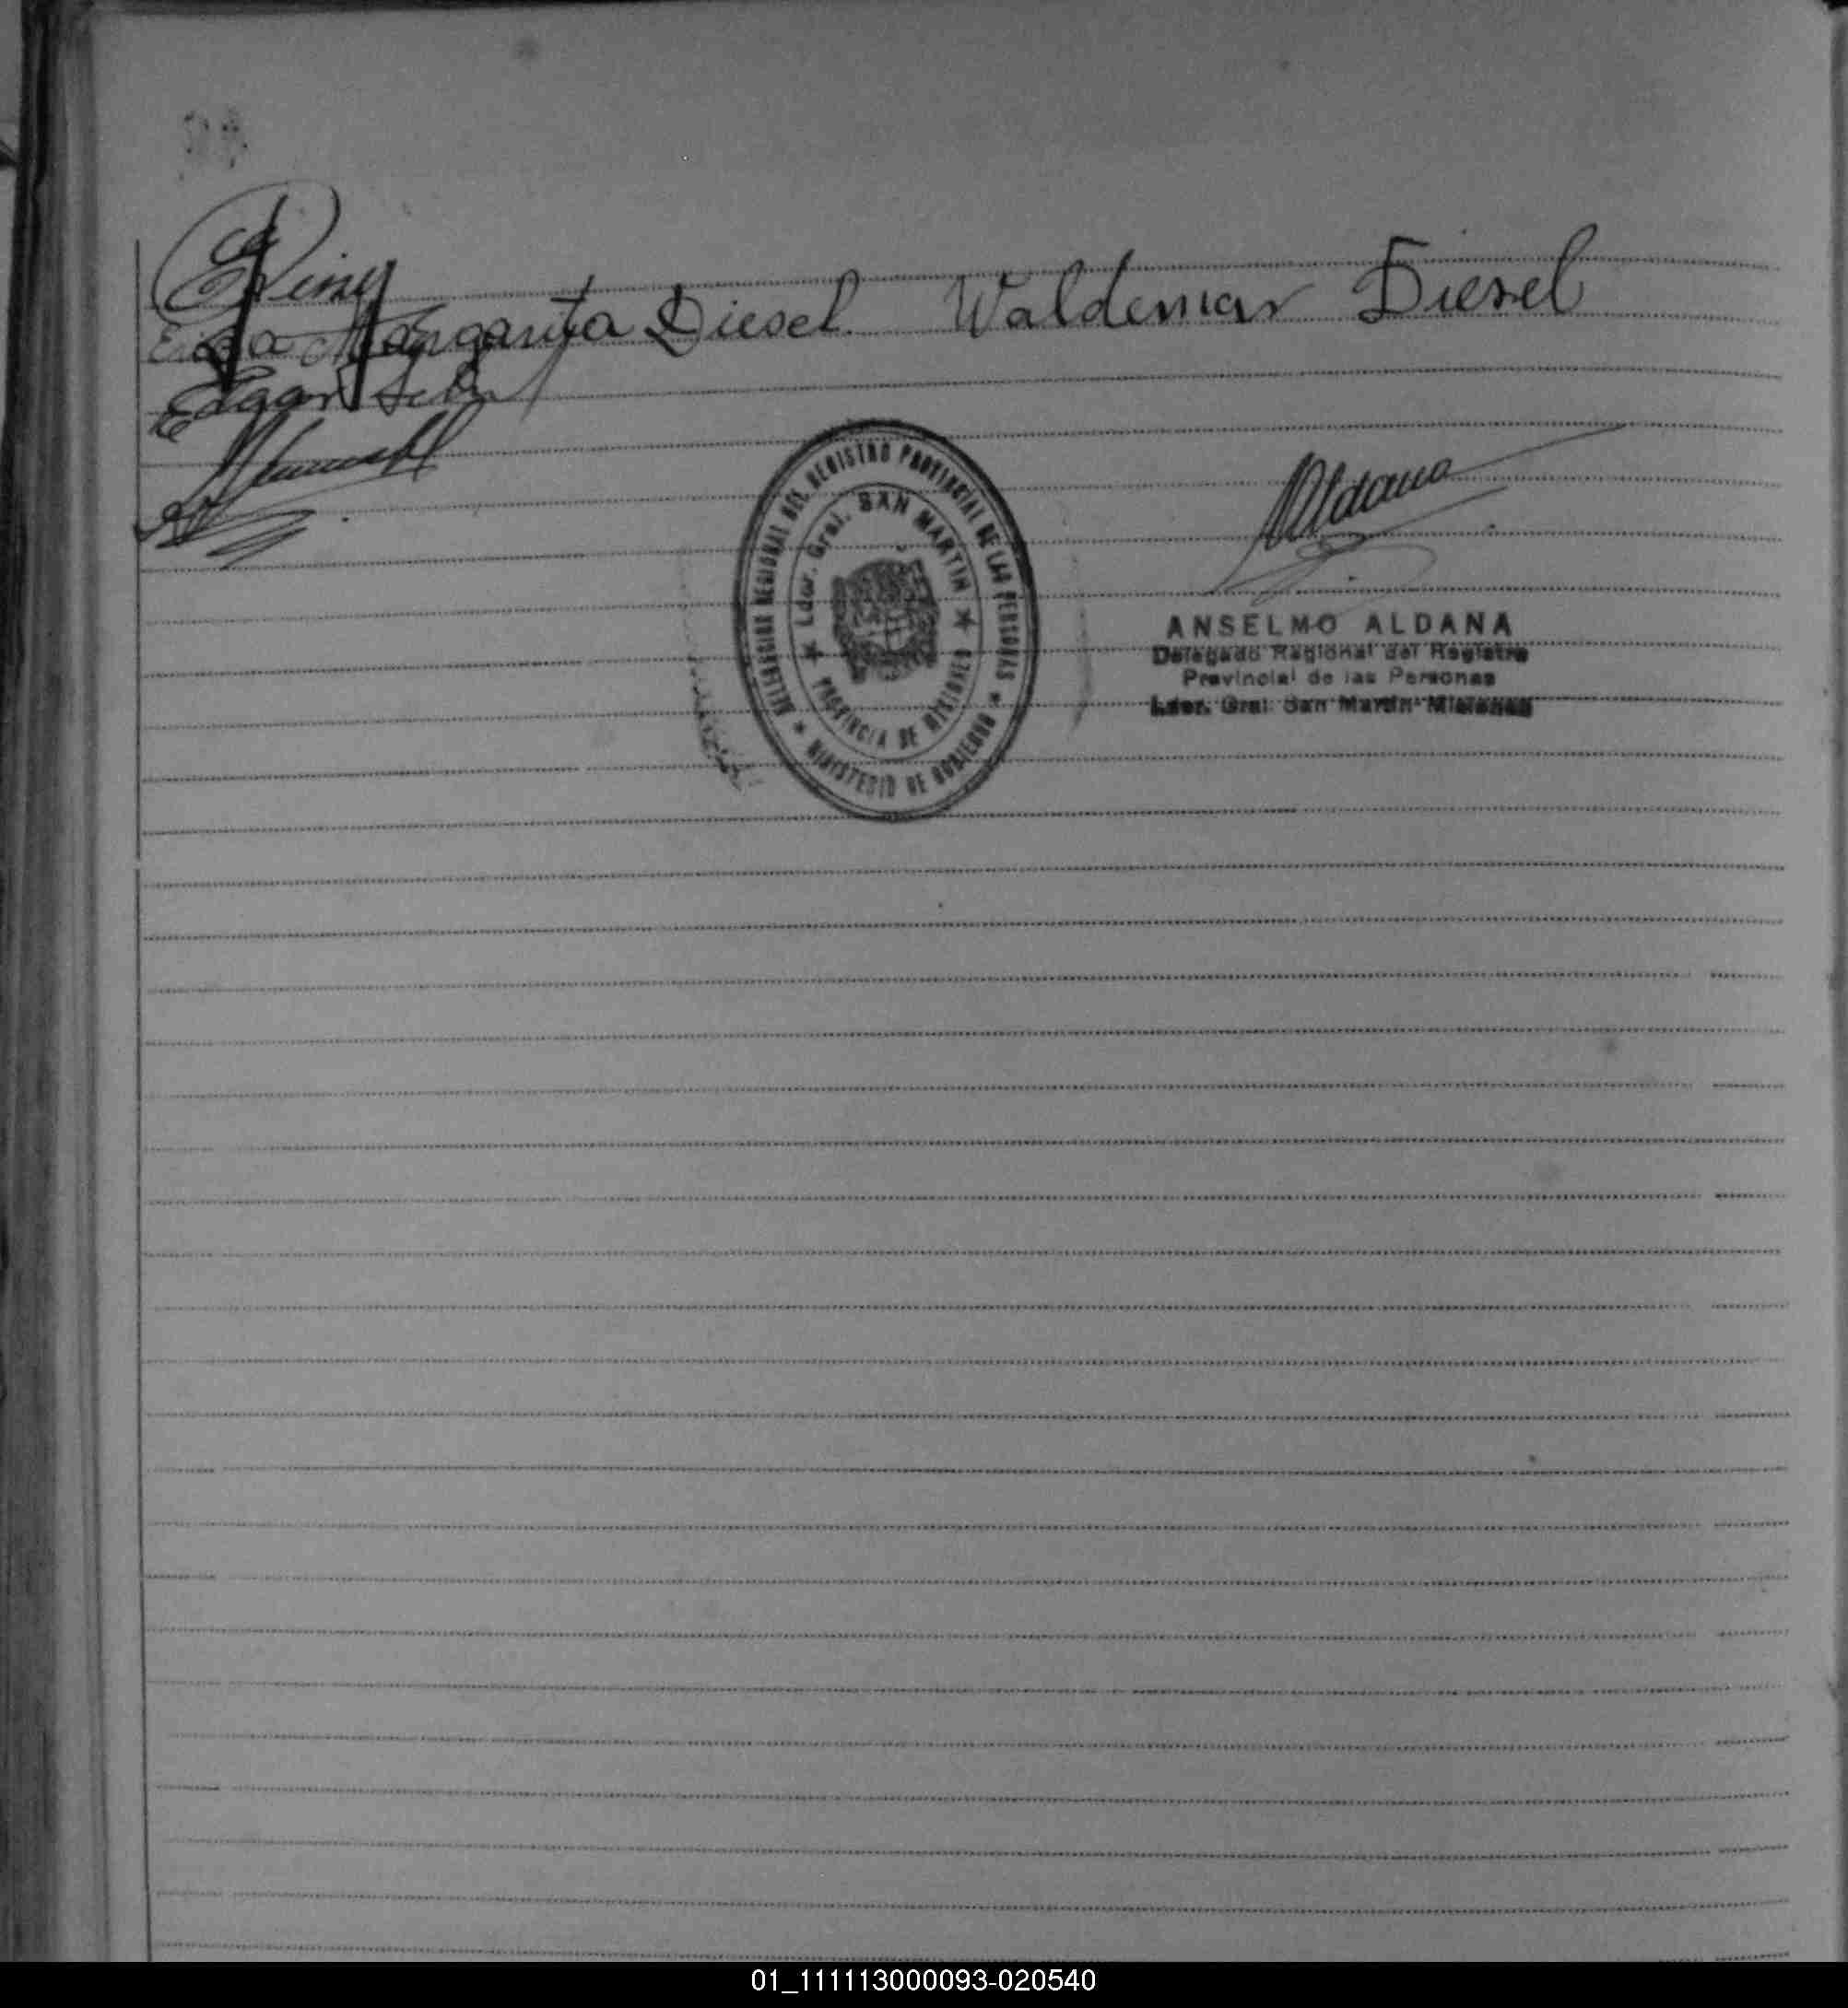 Margarita Diesel. Waldemar Diesel
Edgar
Aldana
DELEGACION REGIONAL DEL REGISTRO PROVINCIAL DE LAS PERSONAS
★ Ldor. Gral. SAN MARTIN ★
PROVINCIA DE MISIONES
★ MINISTERIO DE GOBIERNO ★
ANSELMO ALDANA
Delegado Regional del Registro
Provincial de las Personas
Ldor. Gral. San Martin-Misiones
01_111113000093-020540